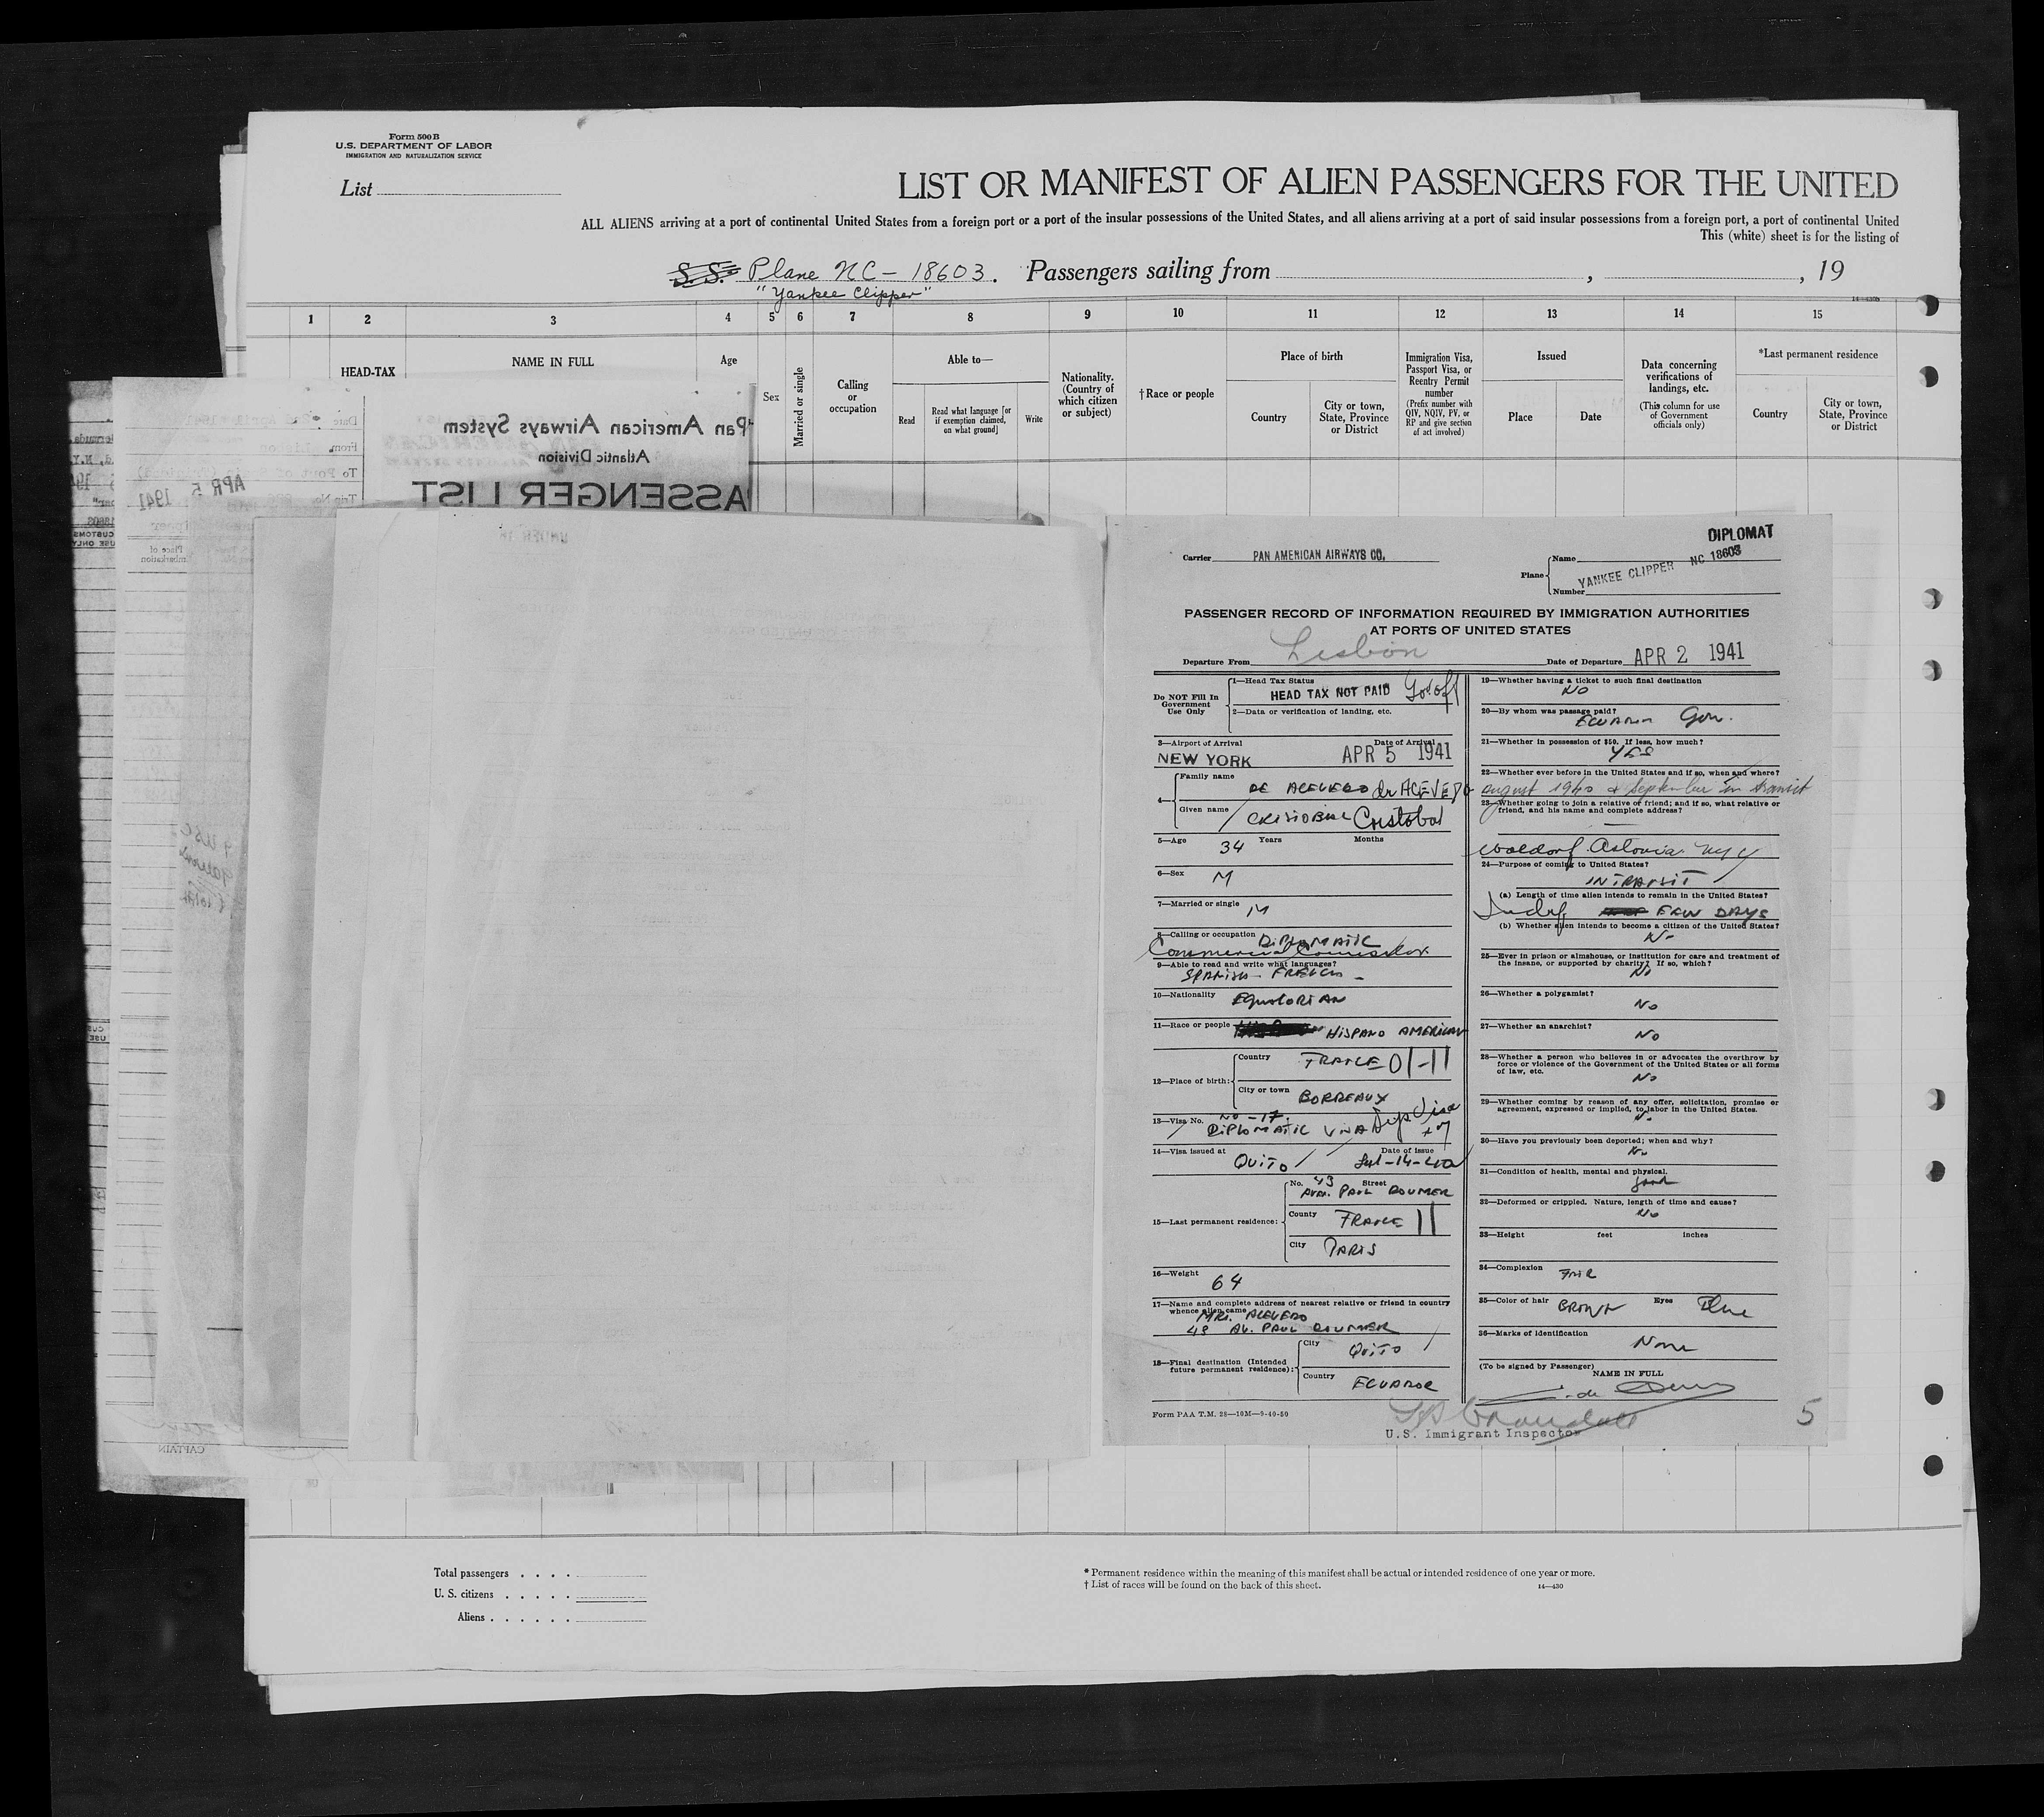 Form 500 B
U.S. DEPARTMENT OF LABOR
IMMIGRATION AND NATURALIZATION SERVICE
List
LIST OR MANIFEST OF ALIEN PASSENGERS FOR THE UNITED
ALL ALIENS arriving at a port of continental United States from a foreign port or a port of the insular possessions of the United States, and all aliens arriving at a port of said insular possessions from a foreign port, a port of continental United
This (white) sheet is for the listing of
S.S. Plane NC-18603. Passengers sailing from , , 19
"Yankee Clipper"
1 2 3 4 5 6 7 8 9 10 11 12 13 14 15
HEAD-TAX
NAME IN FULL
Age
Sex
Married or single
Calling
or
occupation
Able to—
Read
Read what language [or
if exemption claimed,
on what ground]
Write
Nationality.
(Country of
which citizen
or subject)
†Race or people
Place of birth
Country
City or town,
State, Province
or District
Immigration Visa,
Passport Visa, or
Reentry Permit
number
(Prefix number with
QIV, NQIV, PV, or
RP and give section
of act involved)
Issued
Place
Date
Data concerning
verifications of
landings, etc.
(This column for use
of Government
officials only)
*Last permanent residence
Country
City or town,
State, Province
or District
Pan American Airways System
Atlantic Division
ASSENGER LIST
APR 5 1941
CAPTAIN
DIPLOMAT
Carrier PAN AMERICAN AIRWAYS CO.
Plane
Name
YANKEE CLIPPER NC 18603
Number
PASSENGER RECORD OF INFORMATION REQUIRED BY IMMIGRATION AUTHORITIES
AT PORTS OF UNITED STATES
Departure From Lisbon Date of Departure APR 2 1941
Do NOT Fill In
Government
Use Only
1—Head Tax Status
HEAD TAX NOT PAID
2—Data or verification of landing, etc.
3—Airport of Arrival Date of Arrival
NEW YORK APR 5 1941
4—
Family name
DE ACEVEDO de ACEVEDO
Given name
CRISTOBAL Cristobal
5—Age 34 Years Months
6—Sex M
7—Married or single M
8—Calling or occupation DIPLOMATIC
Commercial Counselor
9—Able to read and write what languages?
SPANISH - FRENCH -
10—Nationality EQUATORIAN
11—Race or people HISPANO AMERICAN
12—Place of birth:
Country FRANCE 01-11
City or town BORDEAUX
13—Visa No. NO - 17.
DIPLOMATIC VISA Dip Visa
14—Visa issued at Date of issue
QUITO Jul-14-40
15—Last permanent residence:
No. 43 Street
AVE. PAUL DOUMER
County FRANCE 11
City PARIS
16—Weight 64
17—Name and complete address of nearest relative or friend in country
whence alien came
MRS. ACEVEDO
43 AV. PAUL DOUMER
18—Final destination (Intended
future permanent residence):
City QUITO
Country ECUADOR
Form PAA T.M. 28—10M—9-40-50
19—Whether having a ticket to such final destination
NO
20—By whom was passage paid?
ECUADOR Gov.
21—Whether in possession of $50. If less, how much?
YES
22—Whether ever before in the United States and if so, when and where?
August 1940 & September in transit
23—Whether going to join a relative or friend; and if so, what relative or
friend, and his name and complete address?
Waldorf Astoria NYC
24—Purpose of coming to United States?
IN TRANSIT
(a) Length of time alien intends to remain in the United States?
Indef FEW DAYS
(b) Whether alien intends to become a citizen of the United States?
No
25—Ever in prison or almshouse, or institution for care and treatment of
the insane, or supported by charity? If so, which?
No
26—Whether a polygamist?
No
27—Whether an anarchist?
No
28—Whether a person who believes in or advocates the overthrow by
force or violence of the Government of the United States or all forms
of law, etc.
No
29—Whether coming by reason of any offer, solicitation, promise or
agreement, expressed or implied, to labor in the United States.
No
30—Have you previously been deported; when and why?
No
31—Condition of health, mental and physical.
good
32—Deformed or crippled. Nature, length of time and cause?
No
33—Height feet inches
34—Complexion FAIR
35—Color of hair BROWN Eyes Blue
36—Marks of identification
None
(To be signed by Passenger)
NAME IN FULL
U.S. Immigrant Inspector
5
Total passengers
U. S. citizens
Aliens
* Permanent residence within the meaning of this manifest shall be actual or intended residence of one year or more.
† List of races will be found on the back of this sheet.
14—430